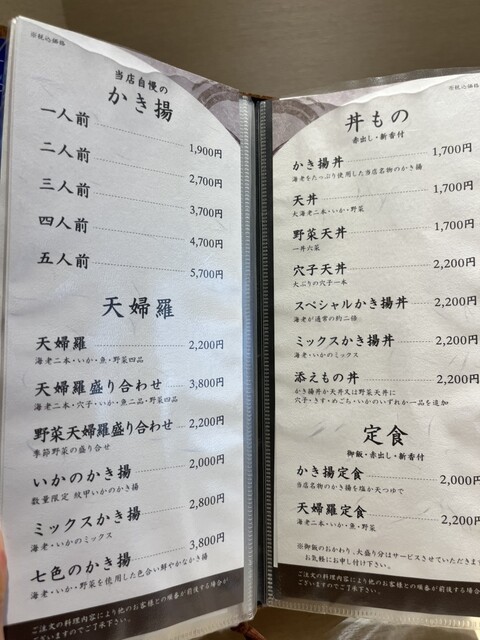 ※税込価格
当店自慢の
かき揚
一人前 1,900円
二人前 2,700円
三人前 3,700円
四人前 4,700円
五人前 5,700円
天婦羅
天婦羅 2,200円
海老二本・いか・魚・野菜四品
天婦羅盛り合わせ 3,800円
海老二本・穴子・いか・魚二品・野菜四品
野菜天婦羅盛り合わせ 2,200円
季節野菜の盛り合せ
いかのかき揚 2,000円
数量限定 紋甲いかのかき揚
ミックスかき揚 2,800円
海老・いかのミックス
七色のかき揚 3,800円
海老・いか・野菜を使用した色合い鮮やかなかき揚
ご注文の料理内容により他のお客様との順番が前後する場合が
ございますのでご了承下さい。
※税込価格
丼もの
赤出し・新香付
かき揚丼 1,700円
海老をたっぷり使用した当店名物のかき揚
天丼 1,700円
大海老二本・いか・野菜
野菜天丼 1,700円
一丼六菜
穴子天丼 2,200円
大ぶりの穴子一本
スペシャルかき揚丼 2,200円
海老が通常の約二倍
ミックスかき揚丼 2,200円
海老・いかのミックス
添えもの丼 2,200円
かき揚丼か天丼又は野菜天丼に
穴子・きす・めごち・いかのいずれか一品を追加
定食
御飯・赤出し・新香付
かき揚定食 2,000円
当店名物のかき揚を塩か天つゆで
天婦羅定食 2,200円
海老二本・いか・魚・野菜
※御飯のおかわり、大盛り分はサービスさせていただきます
お気軽にお申し付け下さい。
ご注文の料理内容により他のお客様との順番が前後する場合
ございますのでご了承下さい。